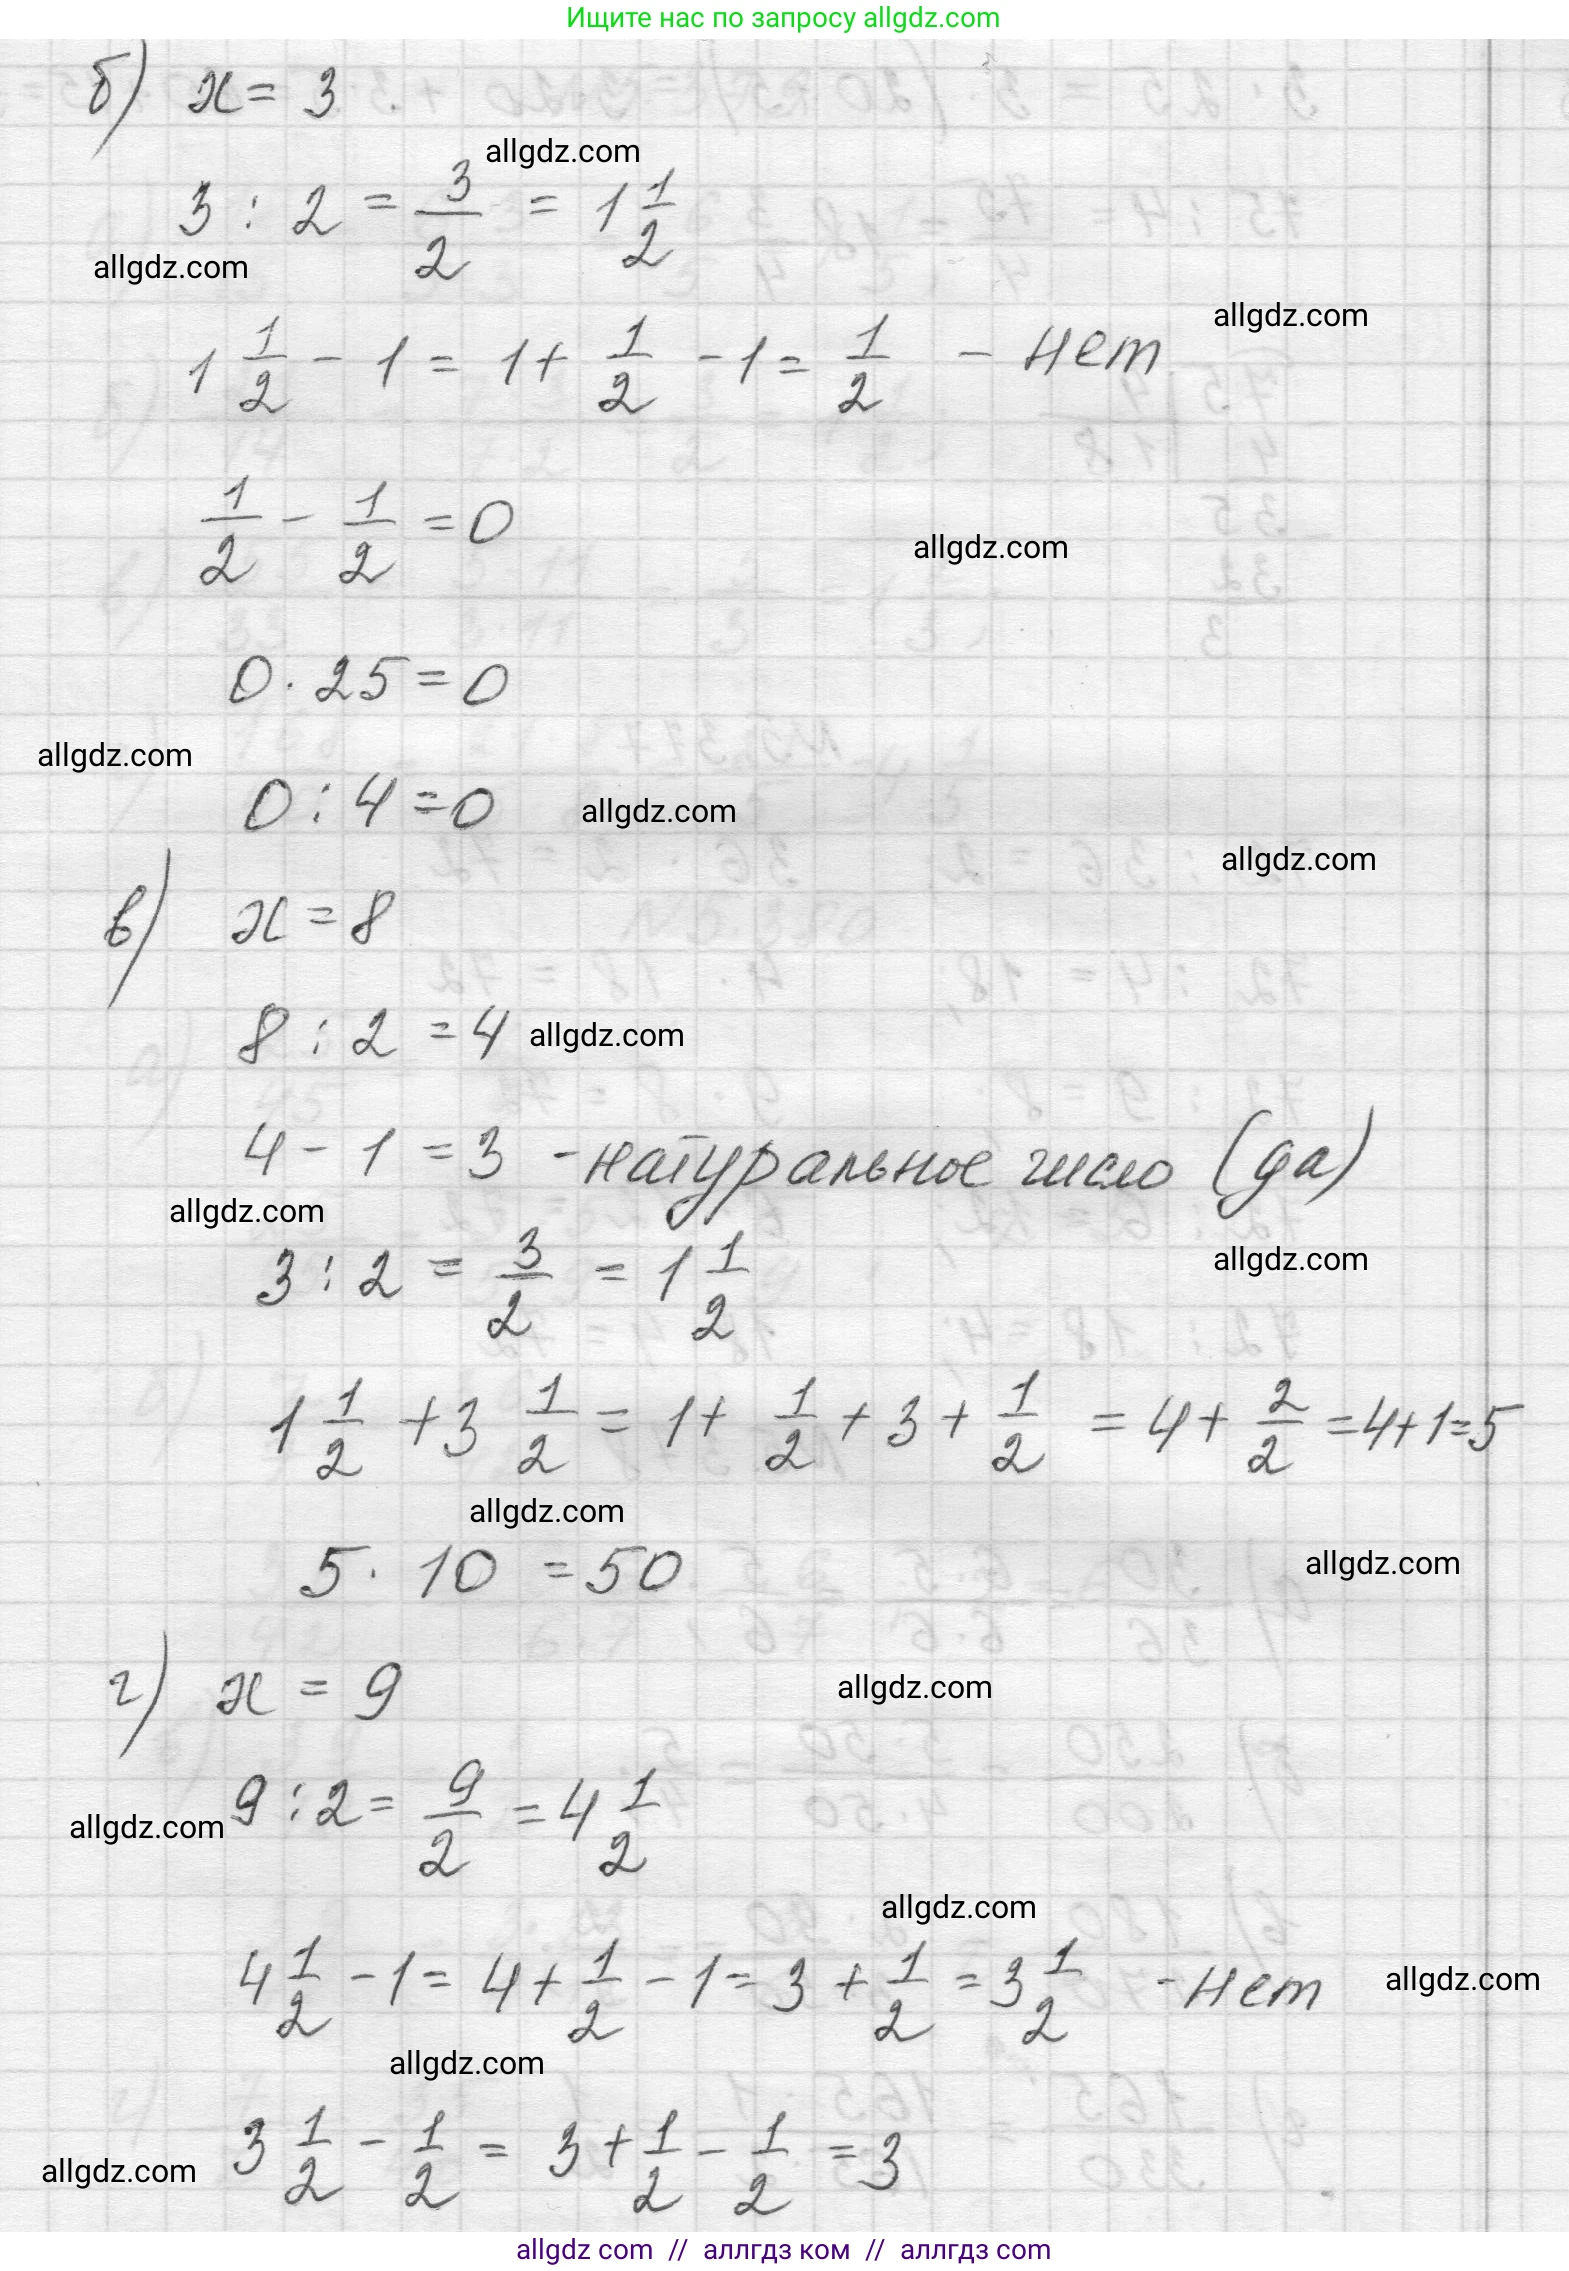 Ищите нас по запросу allgdz.com
б) x = 3
allgdz.com
3 : 2 = 3/2 = 1 1/2
allgdz.com
allgdz.com
1 1/2 - 1 = 1 + 1/2 - 1 = 1/2 - нет
1/2 - 1/2 = 0
allgdz.com
0 · 25 = 0
allgdz.com
0 : 4 = 0 allgdz.com
allgdz.com
в) x = 8
8 : 2 = 4 allgdz.com
4 - 1 = 3 - натуральное число (да)
allgdz.com
allgdz.com
3 : 2 = 3/2 = 1 1/2
1 1/2 + 3 1/2 = 1 + 1/2 + 3 + 1/2 = 4 + 2/2 = 4 + 1 = 5
allgdz.com
allgdz.com
5 · 10 = 50
г) x = 9
allgdz.com
allgdz.com 9 : 2 = 9/2 = 4 1/2
allgdz.com
4 1/2 - 1 = 4 + 1/2 - 1 = 3 + 1/2 = 3 1/2 - нет allgdz.com
allgdz.com
allgdz.com 3 1/2 - 1/2 = 3 + 1/2 - 1/2 = 3
allgdz com // аллгдз ком // аллгдз com